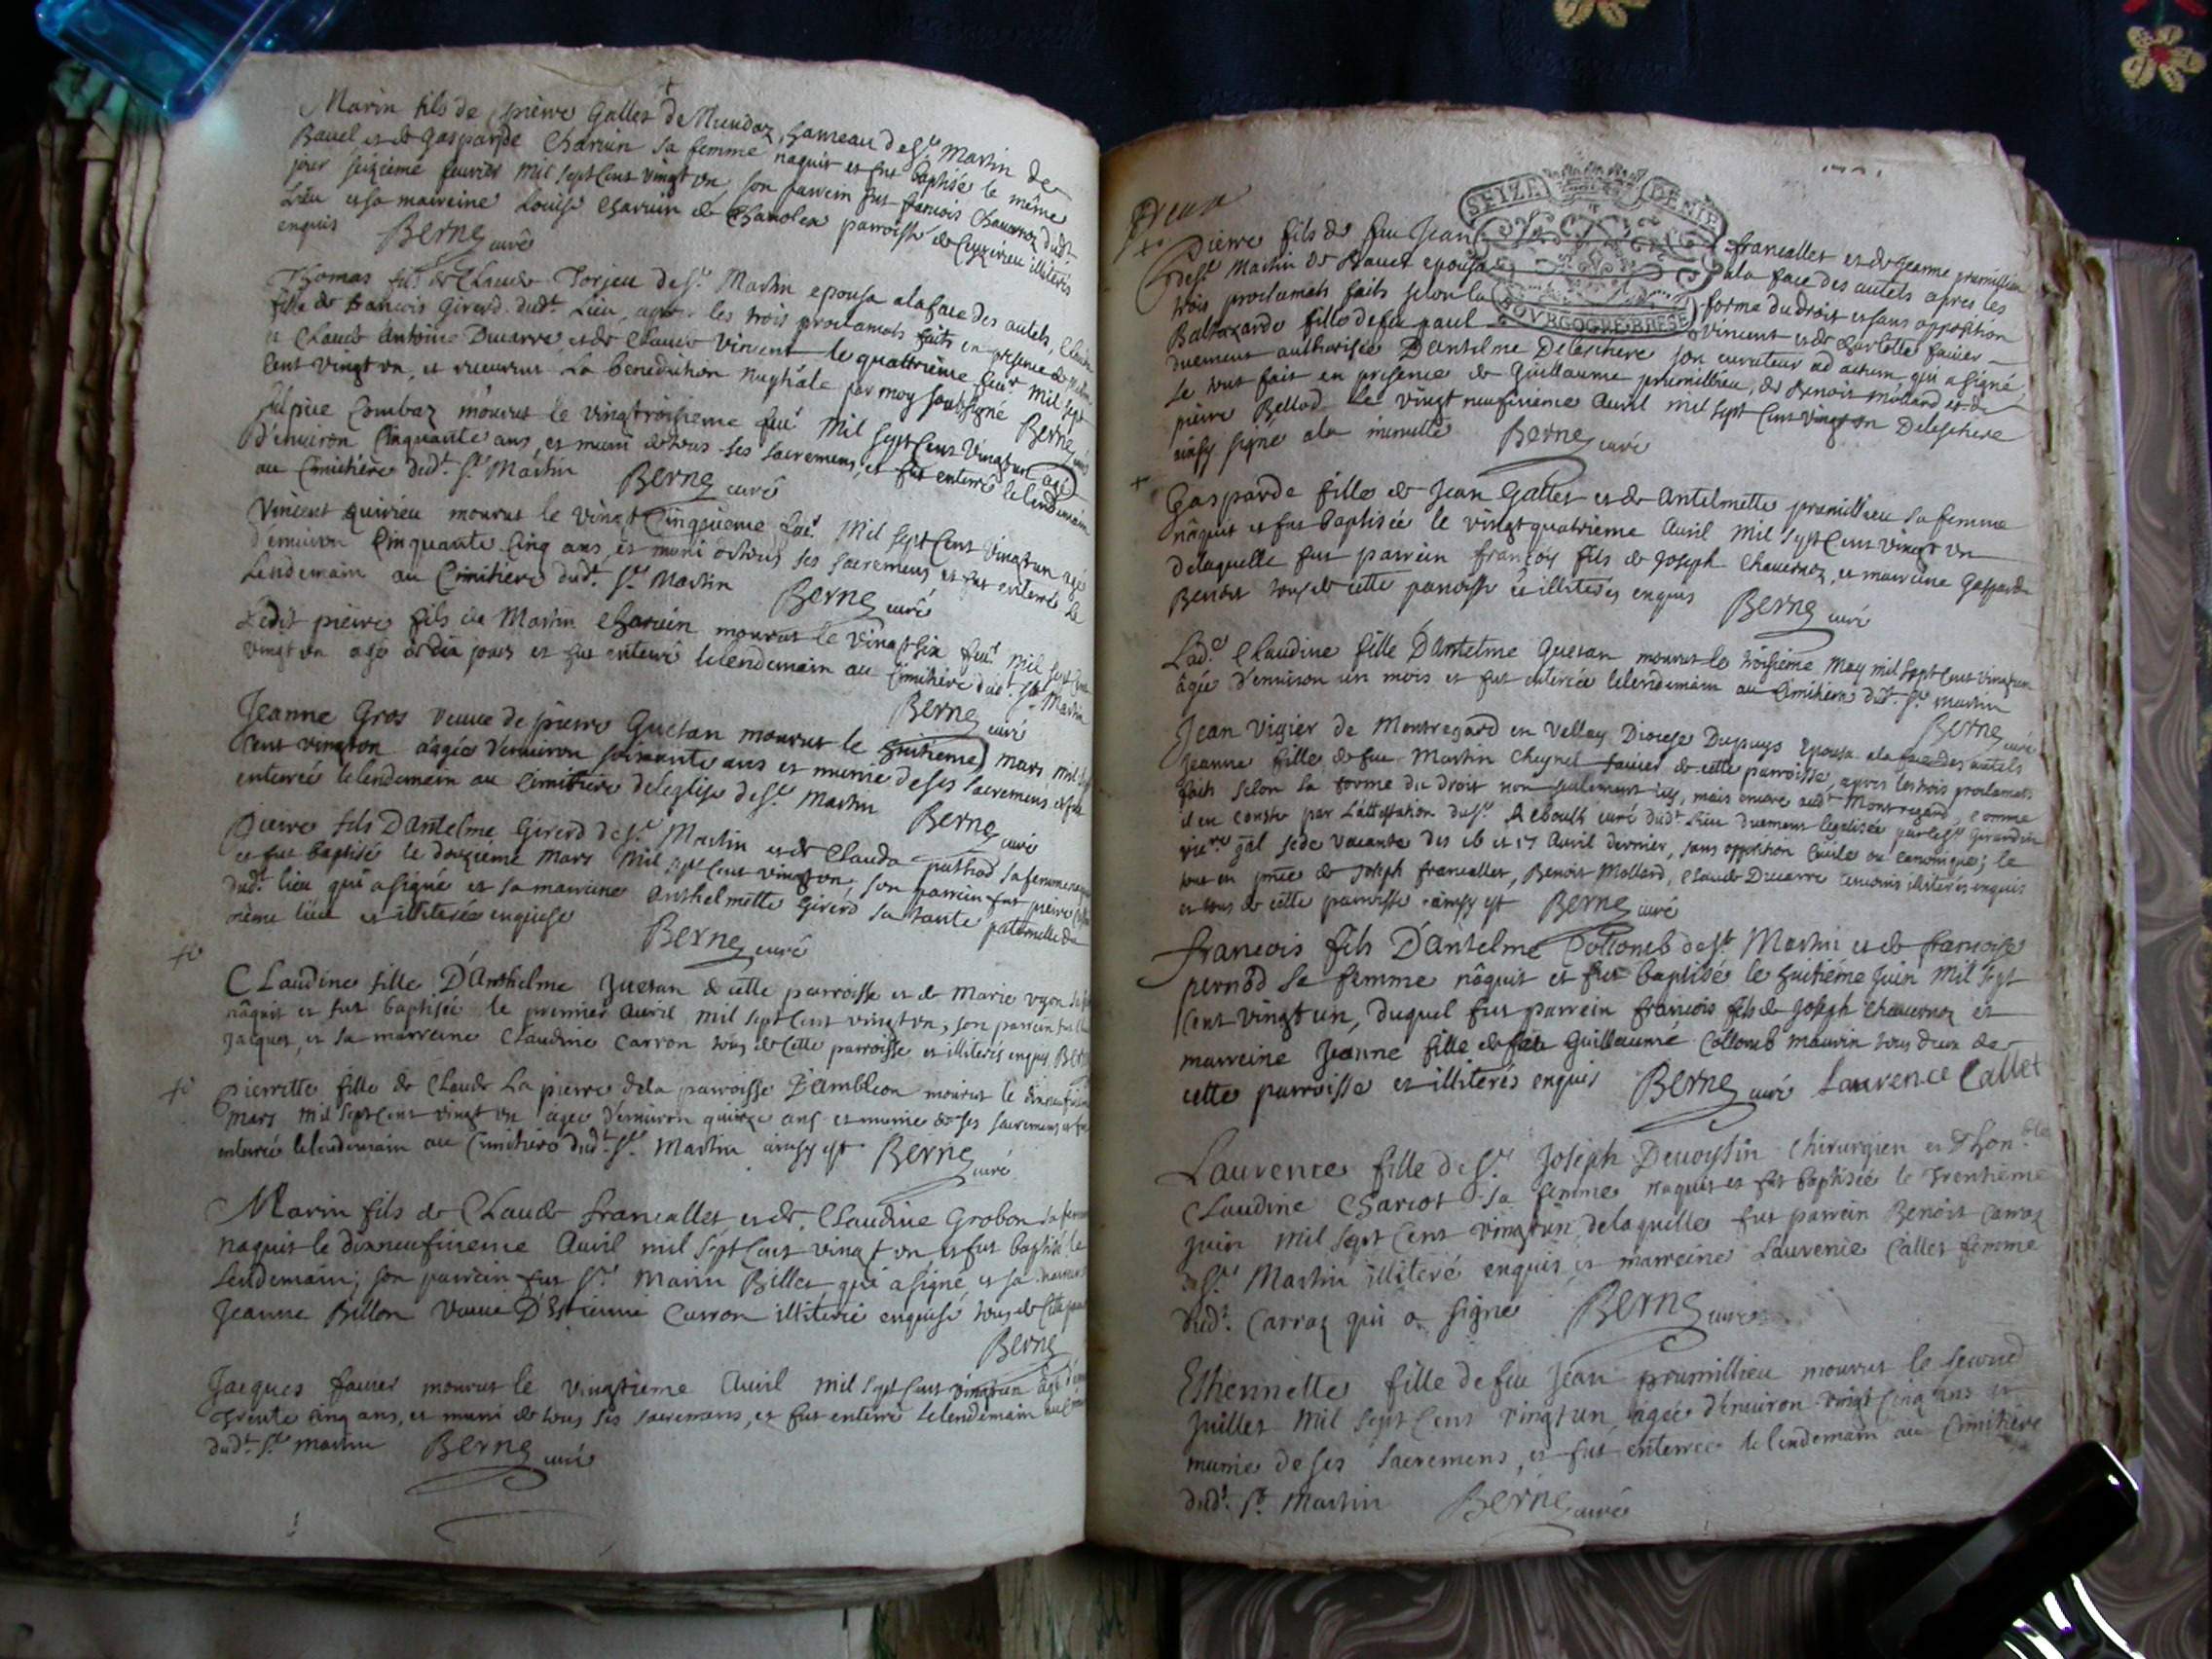 Marin fils de pierre Gallet de Mundoz, hameau de St. Martin de
Bavel et de Gasparde Charvin sa femme naquit et fut baptisé le même
jour seizième fevrier mil sept Cent vingt un, son parrein fut francois Chavernoz dudt.
Lieu et sa maireine Louise Charvin de Chanolex parroisse de Ceyzirieu illiterés
enquis Berne curé
Thomas fils de Claude Torjeu de St. Martin epousa a la face des autels,
fille de francois Girerd dudt. Lieu, apres les trois proclamats faits en presence de
et Claude Antoine Ducarre, et de Claude Vincent le quattrième feur. mil sept
Cent vingt un, et receurent La benediction nuptiale par moy soubsigné Berne curé
Sulpice Combaz mourut le vingtroisieme feur. Mil sept Cent Vingtun agé
d'environ Cinquante ans, et muni de tous ses sacremens, et fut enterré le lendemain
au Cimitière dudt. St. Martin Berne curé
Vincent quirieu mourut le vingt Cinqieme feur. Mil sept Cent Vingtun agé
d'environ Cinquante Cinq ans, et muni de tous ses sacremens et fut enterré le
Lendemain au Cimitière dudt. St. Martin Berne curé
Ledit pierre fils de Martin Charvin mourut le vingt six feur. mil sept Cent
vingt un agé de dix jours et fut enterré le lendemain au Cimitière dudt. St. Martin
Berne curé
Jeanne Gros veuve de pierre Guetan mourut le huitieme mars mil sept
Cent vingt un aagée d'environ soixante ans et munie de ses sacremens et fut
enterrée le lendemain au Cimitiere de leglise de St. Martin Berne curé
Pierre fils D'Antelme Girerd de St. Martin et de Clauda pathod sa femme
et fut baptisé le douzième mars mil sept Cent vingt un, son parrein fut pierre
dudt. lieu qui a signé et sa marreine Anthelmette Girerd sa tante paternelle du
même lieu et illiterée enquise Berne curé
Claudine fille D'Anthelme Guetan de cette parroisse et de Marie
nâquit et fut baptisée le premier Avril mil sept Cent vingt un, son parrein fut
Jacques, et sa marreine Claudine Carron tous de Cette parroisse et illiterés enquis Berne
Pierrette fille de Claude La pierre de la parroisse D'Ambleon mourut le
Mars mil sept Cent vingt un agée d'environ quinze ans et munie de ses sacremens et fut
enterrée le lendemain au Cimitiere dudt. St. Martin ainsy est Berne curé
Marin fils de Claude francallet et de Claudine Grobon sa femme
naquit le dixneufvieme Avril mil sept Cent vingt un et fut baptisé le
lendemain; son parrein fut Sr. Marin Billet qui a signé, et sa marreine
Jeanne Billon veuve D'Estienne Carron illiterée enquise tous de Cette
Berne
Jacques favier mourut le vingtieme Avril mil sept Cent vingtun agé
trente Cinq ans, et muni de tous ses sacremens, et fut enterré le lendemain au
dudt. St. Martin Berne curé
SEIZE DENIE
BOURGOGNE BRESSE
Pierre fils de feu Jean francallet et de Jeanne prumillieu
de St. Martin de Bavel epousa a la face des autels apres les
trois proclamats faits selon la forme du droit et sans opposition
Baltazarde fille de feu paul Vincent et de Charlotte favier
duement authorisée D'antelme Deleschere son curateur ad actum, qui a signé,
Le tout fait en presence de Guillaume prumillieu, de Benoit Mollard et de
pierre Bellod le vingt neufvieme Avril mil sept Cent vingt un Deleschere
ainsy signé a la minutte Berne curé
Gasparde fille de Jean Gallet et de Antelmette prumillieu sa femme
nâquit et fut baptisée le vingtquatrieme Avril mil sept Cent vingt un
delaquelle fut parrein françois fils de Joseph Chavernoz, et marreine Gasparde
Benoit tous de cette parroisse et illiterés enquis Berne curé
Ladt. Claudine fille D'Antelme Guetan mourut le troisieme May mil sept Cent vingtun
âgée d'environ un mois et fut enterrée le lendemain au Cimitiere dudt. St. Martin
Berne curé
Jean Vigier de Montregard en Vellay Diocese Dupuys Epousa a la face des autels
Jeanne fille de feu Martin Cheynel favier de cette parroisse, apres les trois proclamats
faits selon la forme du droit non seulement icy, mais encore audt. Montregard, comme
il en conste par L'attestation du Sr. Reboult curé dudt. Lieu duement legalisée par le Sr. Girardin
vicre. gñl sede vacante des 16 et 17 Avril dernier, sans opposition Civile ou canonique; le
tout en pñce de Joseph francallet, Benoit Mollard, Claude Ducarre temoins illiterés enquis
et tous de cette parroisse ainsy est Berne curé
francois fils D'Antelme Collomb de St. Martin et de francoise
pernod sa femme nâquit et fut baptisé le huitième Juin mil sept
Cent vingt un, duquel fut parrein francois fils de Joseph Chavernoz et
marreine Jeanne fille de feu Guillaume Collomb maurin tous deux de
cette parroisse et illiterés enquis Berne curé Laurence Callet
Laurence fille de Sr. Joseph Devoystin Chirurgien et D'hon.ble
Claudine Charcot sa femme naquit et fut baptisée le trentième
Juin mil sept Cent vingtun delaquelle fut parrein Benoit Carraz
de St. Martin illiteré enquis et marreine Laurence Callet femme
dudt. Carraz qui a signé Berne curé
Ethiennette fille de feu Jean prumillieu mourut le second
Juillet mil sept Cent vingtun, agée d'environ vingt Cinq ans et
munie de ses sacremens, et fut enterrée le lendemain au Cimitiere
dudt. St. Martin Berne curé